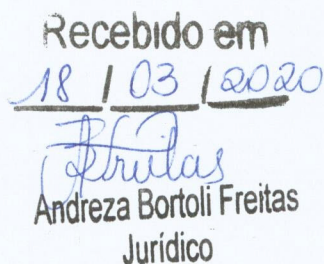 Recebido em
18 / 03 / 2020
Freitas
Andreza Bortoli Freitas
Jurídico